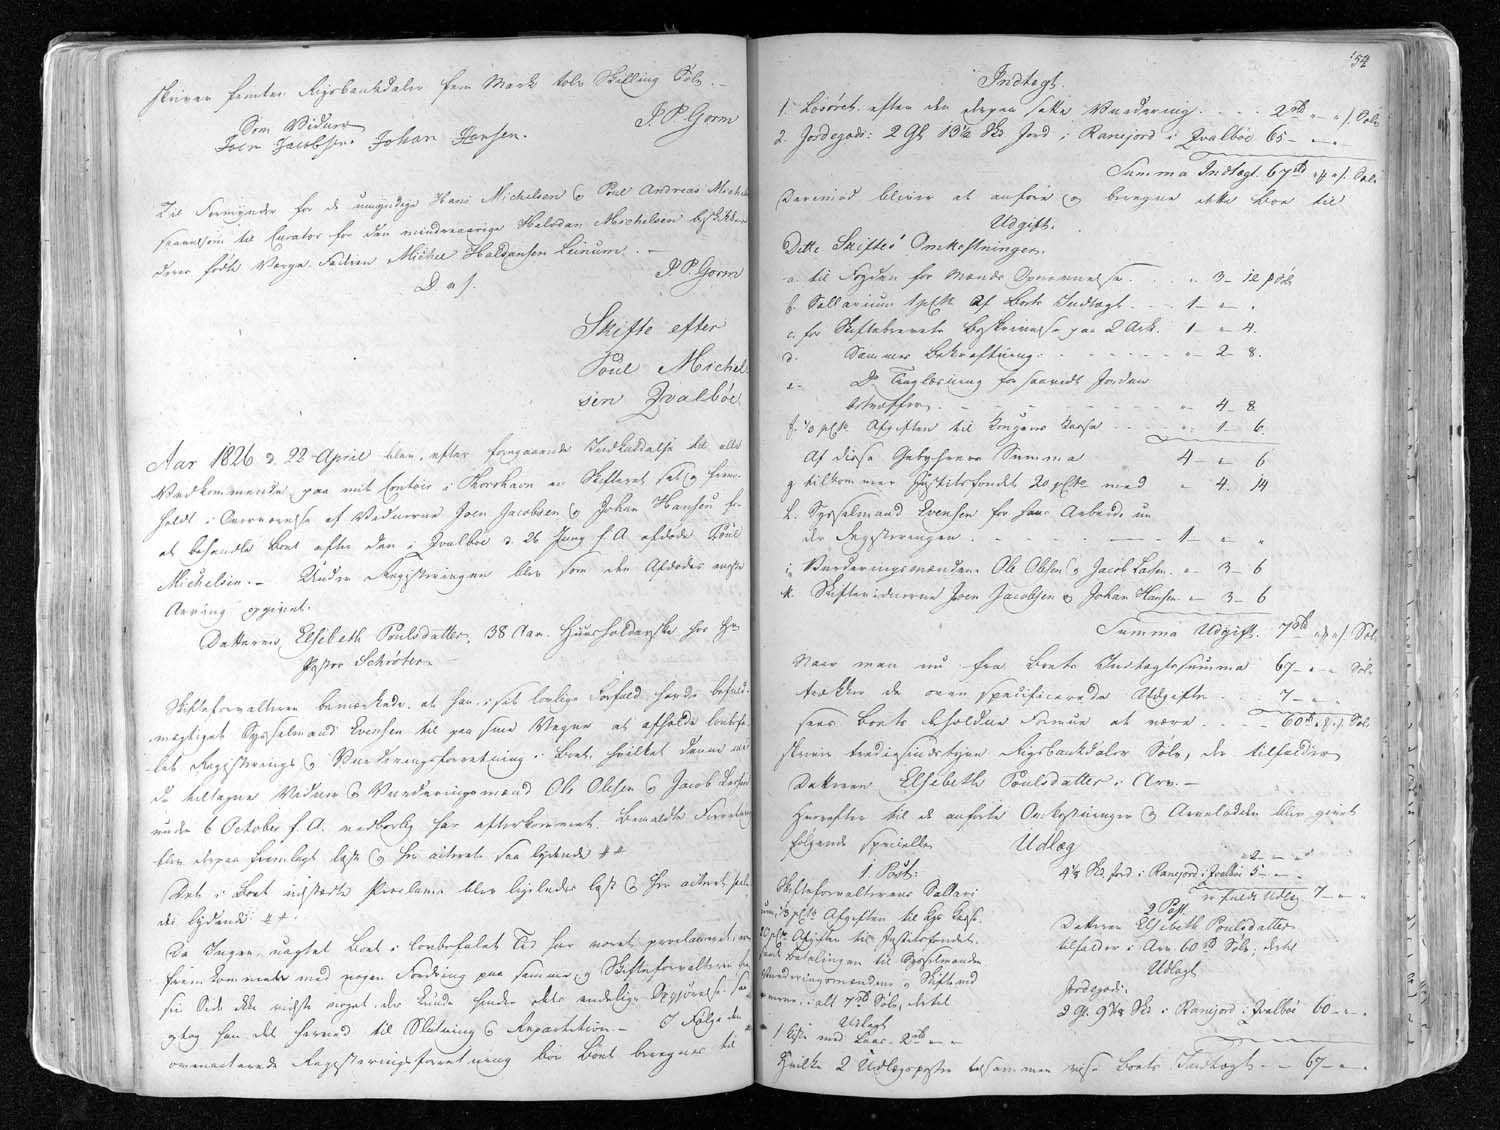 skriver femten Rigsbankdaler fem Mark tolv Skilling Sølv. –
Som Vidner
J. P. Gorm
Joen Jacobsen. Johan Hansen.
Til Formynder for de umyndige Hans Michelsen og Poul Andreas Michel
saavelsom til Curator for den mindreaarige Halvdan Michelsen beskikkes
deres fødte Verge Fadren Michel Haldansen Leinum. –
J. P. Gorm
D. a. s.
Skifte efter
Poul Michel
sen Qvalbøe
Aar 1826 d. 22 April blev, efter foregaaende Indkaldelse til alle
Vedkommende, paa mit Contoir i Thorshavn en Skifteret sat og frem-
holdt i Overværelse af Vidnerne Joen Jacobsen og Johan Hansen for
at behandle Boet efter den i Qvalbøe d. 26 Juny f. A. afdøde Poul
Michelsen. – Under Registreringen blev som den Afdødes eneste
Arving opgivet.
Datteren Elsebeth Poulsdatter, 38 Aar, Huusholderske hos Hr
Pastor Schrøter. –
Skifteforvalteren bemærkede, at han i sit lovlige Forfald havde befuld-
mægtiget Sysselmand Evensen til paa sine Vegne at afholde lovbefa-
let Registrerings og Vurderingsforretning i Boet, hvilket denne med
de tiltagne Vidner og Vurderingsmænd Ole Olesen og Jacob Larsen
under 6 October f. A. vedbørlig har efterkommet. Bemeldte Forretning
blev derpaa fremlagt læst og her acteret saa lydende ##
Det i Boet udstædte Proclama blev ligeledes læst og her acteret saale-
des lydende ##.
Da Ingen, uagtet Boet i lovbefalet Tid har været proclameret, er
fremkommet med nogen Fordring paa samme, og Skifteforvalteren paa
sin Side ikke vidste noget, der kunde hindre dets endelige Opgjørelse, saa
skred han det herved til Slutning og Repartition. – I Følge den
ovenacterede Registreringsforretning bør Boet beregnes til
54
Indtægt.
1. Løsøret efter den derpaa satte Vurdering. . . . 2 rd " " s. Sølv
2. Jordegods: 2 Gl. 13½ Skd Jord i Ranejord i Qvalbøe 65 – " – "
Summa Indtægt. 67 rd " " s. Sølv
Derimod bliver at anføre og beregne dette Boe til
Udgift.
Dette Skiftes Omkostninger.
a. til Fogden for Mænds Opnævnelse . . . . " 3 – 12 s Sølv
b. Sallarium 1 pCto af Boets Indtægt . . . 1 – " – "
c. for Skiftebrevets beskrivelse paa 2 Ark. 1 – " – 4.
d. Sammes bekræftning . . . . . . " – 2 – 8.
e. Do Tinglæsning forsaavidt Jorden
betræffer. . . . . . . . " – 4 – 8.
f. ⅓ pCto Afgiften til Kongens Kasse . . " – 1 – 6.
Af disse Gebyhrers Summa 4 – " – 6
g. tilkommer Justitsfondet 20 pCto med " – 4. 14
h. Sysselmand Evensen for sine Arbeide un
der Registreringen . . . . . . 1 – " – "
i. Vurderingsmændene Ole Olesen og Jacob Larsen. " – 3 – 6
k. Skiftevidnerne Joen Jacobsen og Johan Hansen. " – 3 – 6
Summa Udgift. 7 rd " " s. Sølv
Naar man nu fra Boets Indtægtssumma 67 – " – " Sølv
trækker de oven specificerede Udgifter . . 7 – " – "
sees Boets beholdne Formue at være . . – 60 rd " s. Sølv
skriver tredsindstyve Rigsbankdaler Sølv, der tilfalder
Datteren Elsebeth Poulsdatter i Arv. –
Herefter til de anførte Omkostninger og Arvelodden blev givet
følgende specielle Udlæg
1. Post:
Skifteforvalterens Sallari
um, ⅓ pCto Afgiften til Kgs Casse,
20 pCto Afgiften til Justitsfondet,
samt betalingen til Sysselmanden
Vurderingsmændene og Skiftevid
nerne, i alt 7 rd Sølv, dertil
Udlagt
1 Kiste med Laas 2 rd – " – "
2 – " – "
4½ Skd Jord i Ranejord i Qvalbøe 5 – " – "
er fulde Udlæg 7 – " – "
2 Post.
Datteren Elsebeth Poulsdatter
tilfalder i Arv 60 rd Sølv, dertil
Udlagt
Jordegods:
2 Gl. 9 Skd i Ranejord i Qvalbøe 60 – " – "
Hvilke 2 Udlægsposter tilsammen vise Boets Indtægt – – 67 – " – "